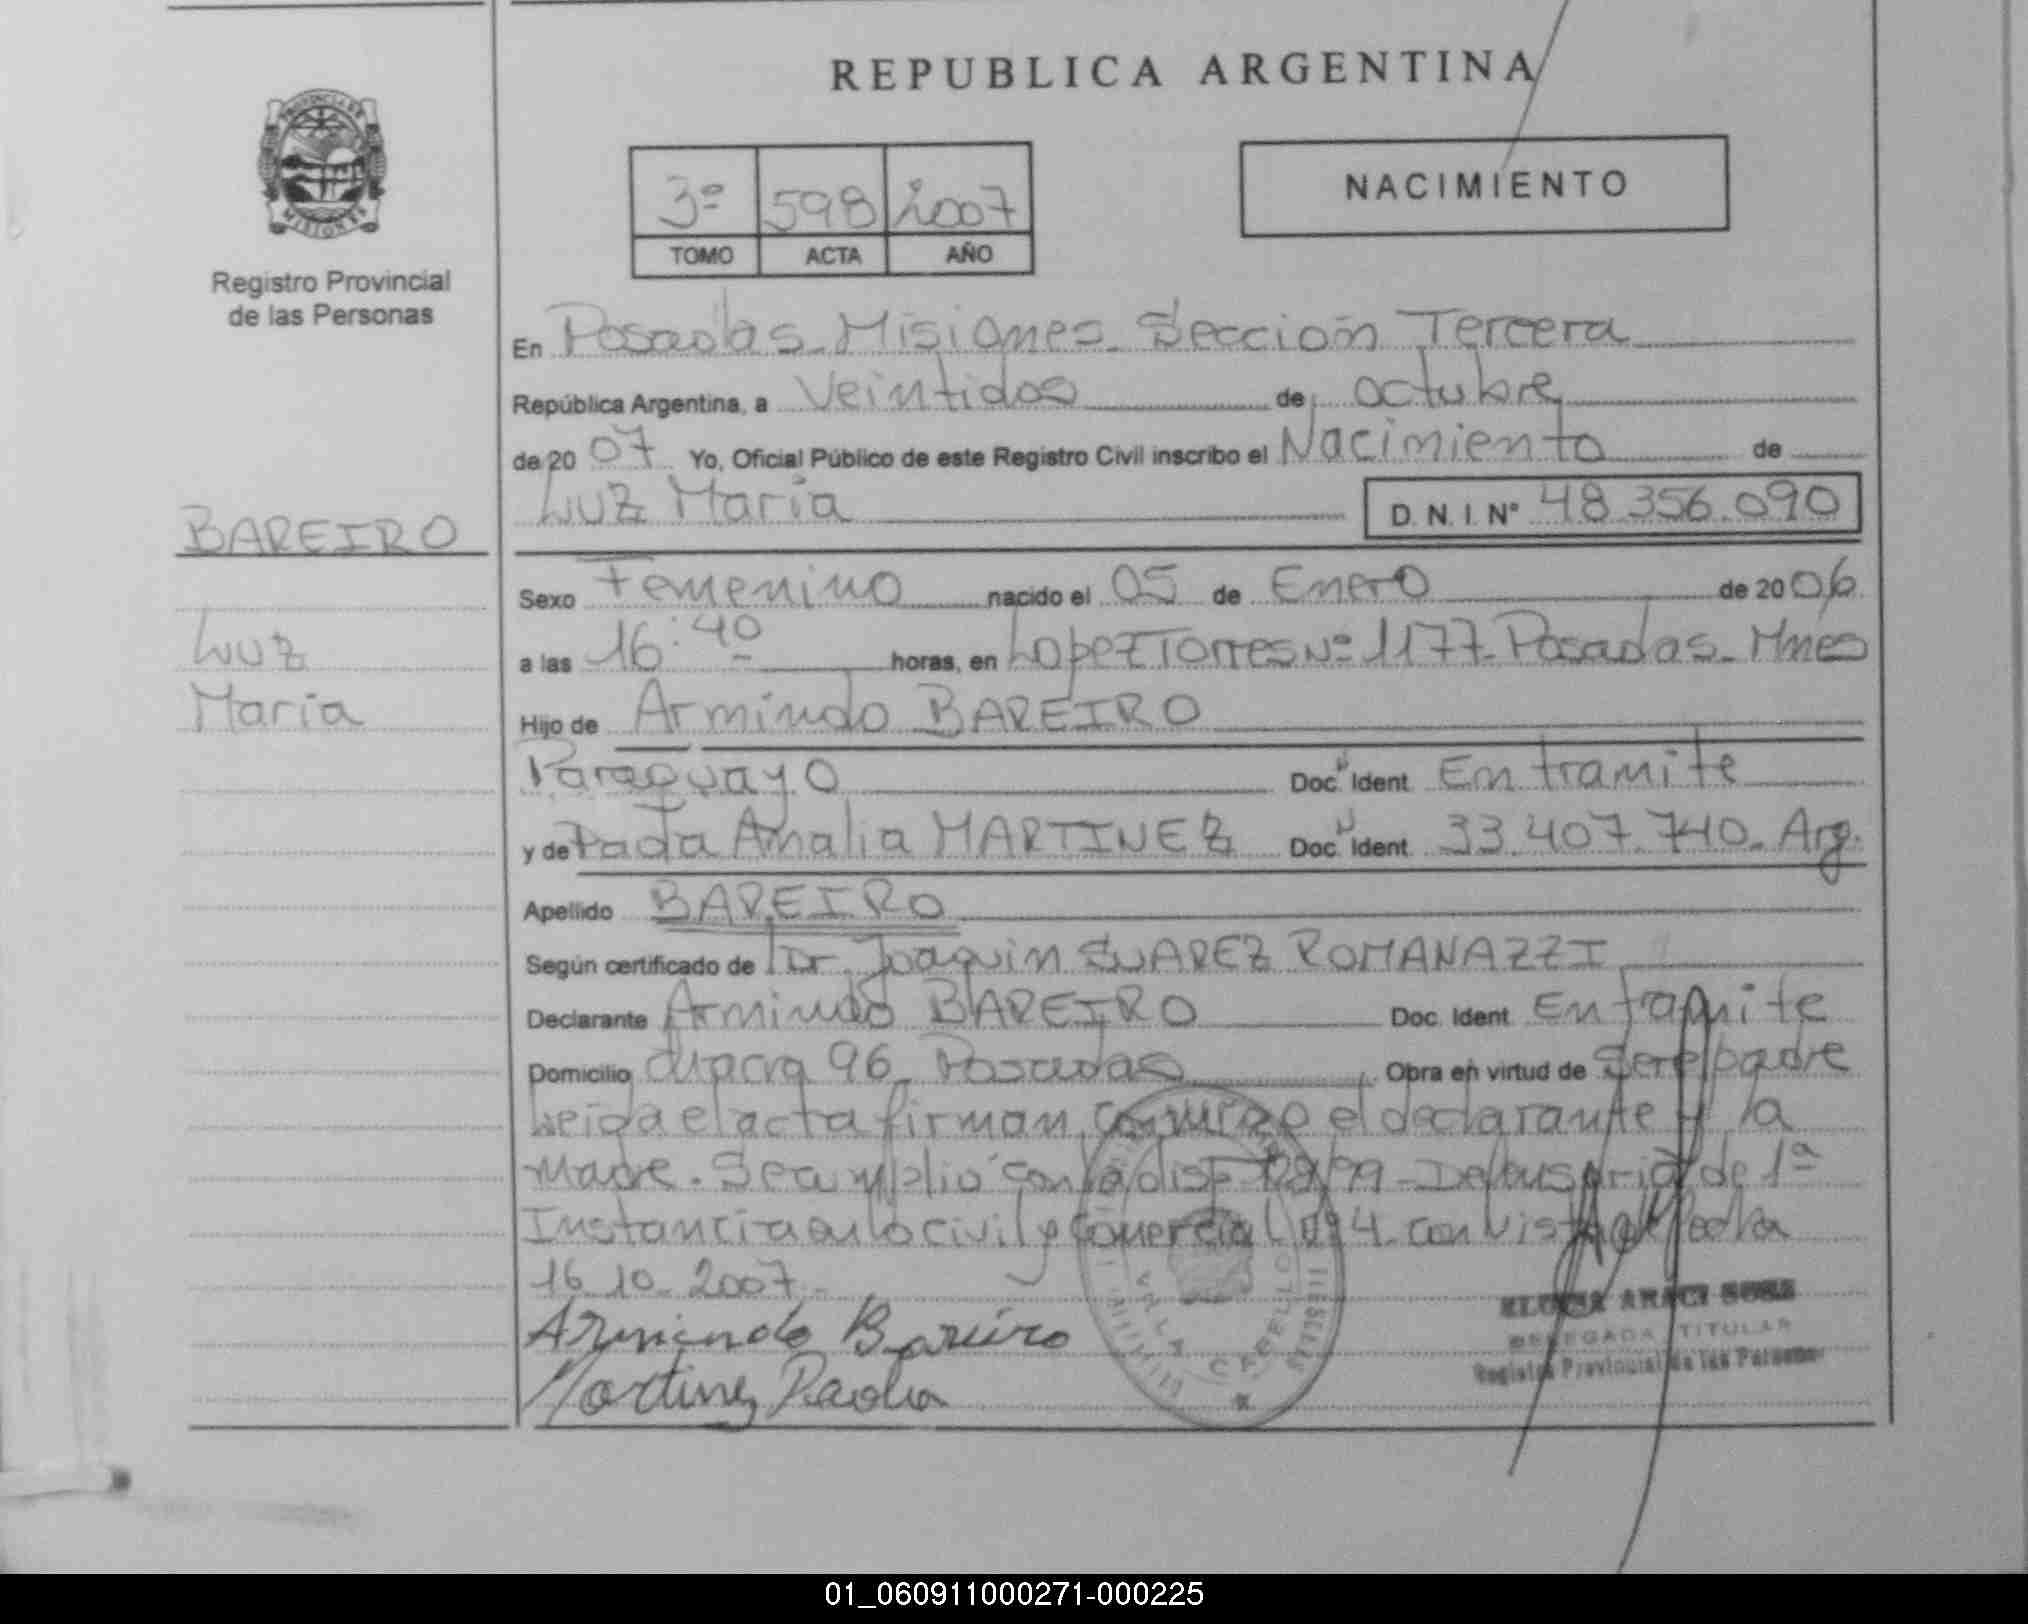 REPUBLICA ARGENTINA
PROVINCIA DE
MISIONES
Registro Provincial
de las Personas
3º 598 2007
TOMO ACTA AÑO
NACIMIENTO
En Posadas - Misiones - Sección Tercera
República Argentina, a Veintidos de octubre
de 20 07 Yo, Oficial Público de este Registro Civil inscribo el Nacimiento de
Luz Maria D.N.I. Nº 48.356.090
BAREIRO
Luz
Maria
Sexo Femenino nacido el 05 de Enero de 20 06
a las 16:40 horas, en Lopez Torres Nº 1177 - Posadas - Mnes
Hijo de Armindo BAREIRO
Paraguayo Doc. Ident. En tramite
y de Amalia MARTINEZ Doc. Ident. 33.407.740 - Arg.
Apellido BAREIRO
Según certificado de Dr. Joaquin SUAREZ ROMANAZZI
Declarante Armindo BAREIRO Doc. Ident. En tramite
Domicilio chacra 96 - Posadas Obra en virtud de Ser el padre
Leida el acta firman conmigo el declarante y la
madre. Se cumplió con la disp. - Defensoria de 1ª
Instancia en lo civil y Comercial Nº 4 con vista de fecha
16.10.2007.-
Armindo Bareiro
Martinez Paola
VILLA CABELLO
MISIONES
ARACI SOSA
DELEGADA TITULAR
Registro Provincial de las Personas
01_060911000271-000225